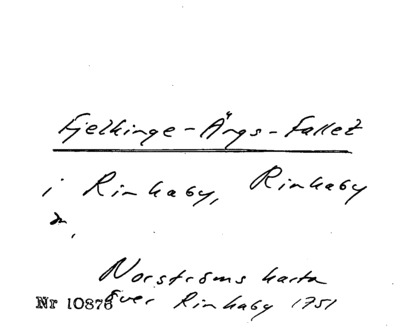 Fjelkinge-Ängs-Fallet
i Rinkaby, Rinkaby
sn,
Norströms karta
Nr 10876 över Rinkaby 1751